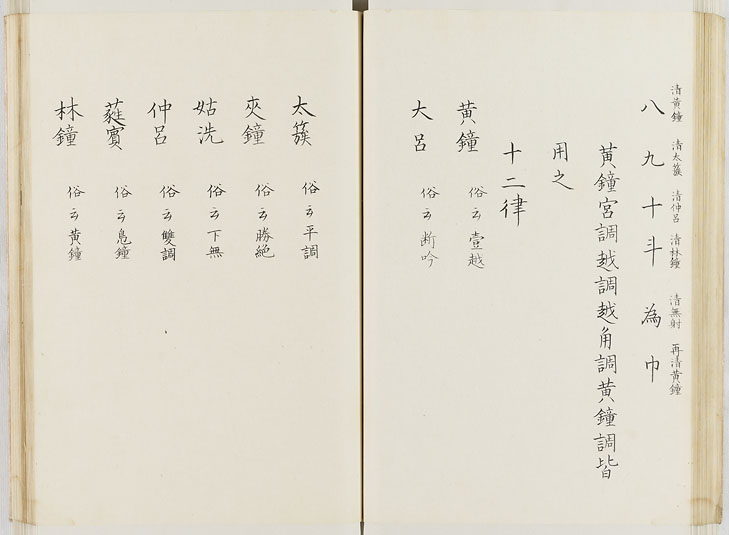 清黃鐘 清太簇 清仲呂 清林鐘 清無射 再清黃鐘
八九十斗為巾
黃鐘宮調越調越角調黃鐘調皆
用之
十二律
黃鐘 俗云壹越
大呂 俗云断吟
太簇 俗云平調
夾鐘 俗云勝絶
姑洗 俗云下無
仲呂 俗云雙調
蕤賓 俗云鳧鐘
林鐘 俗云黃鐘